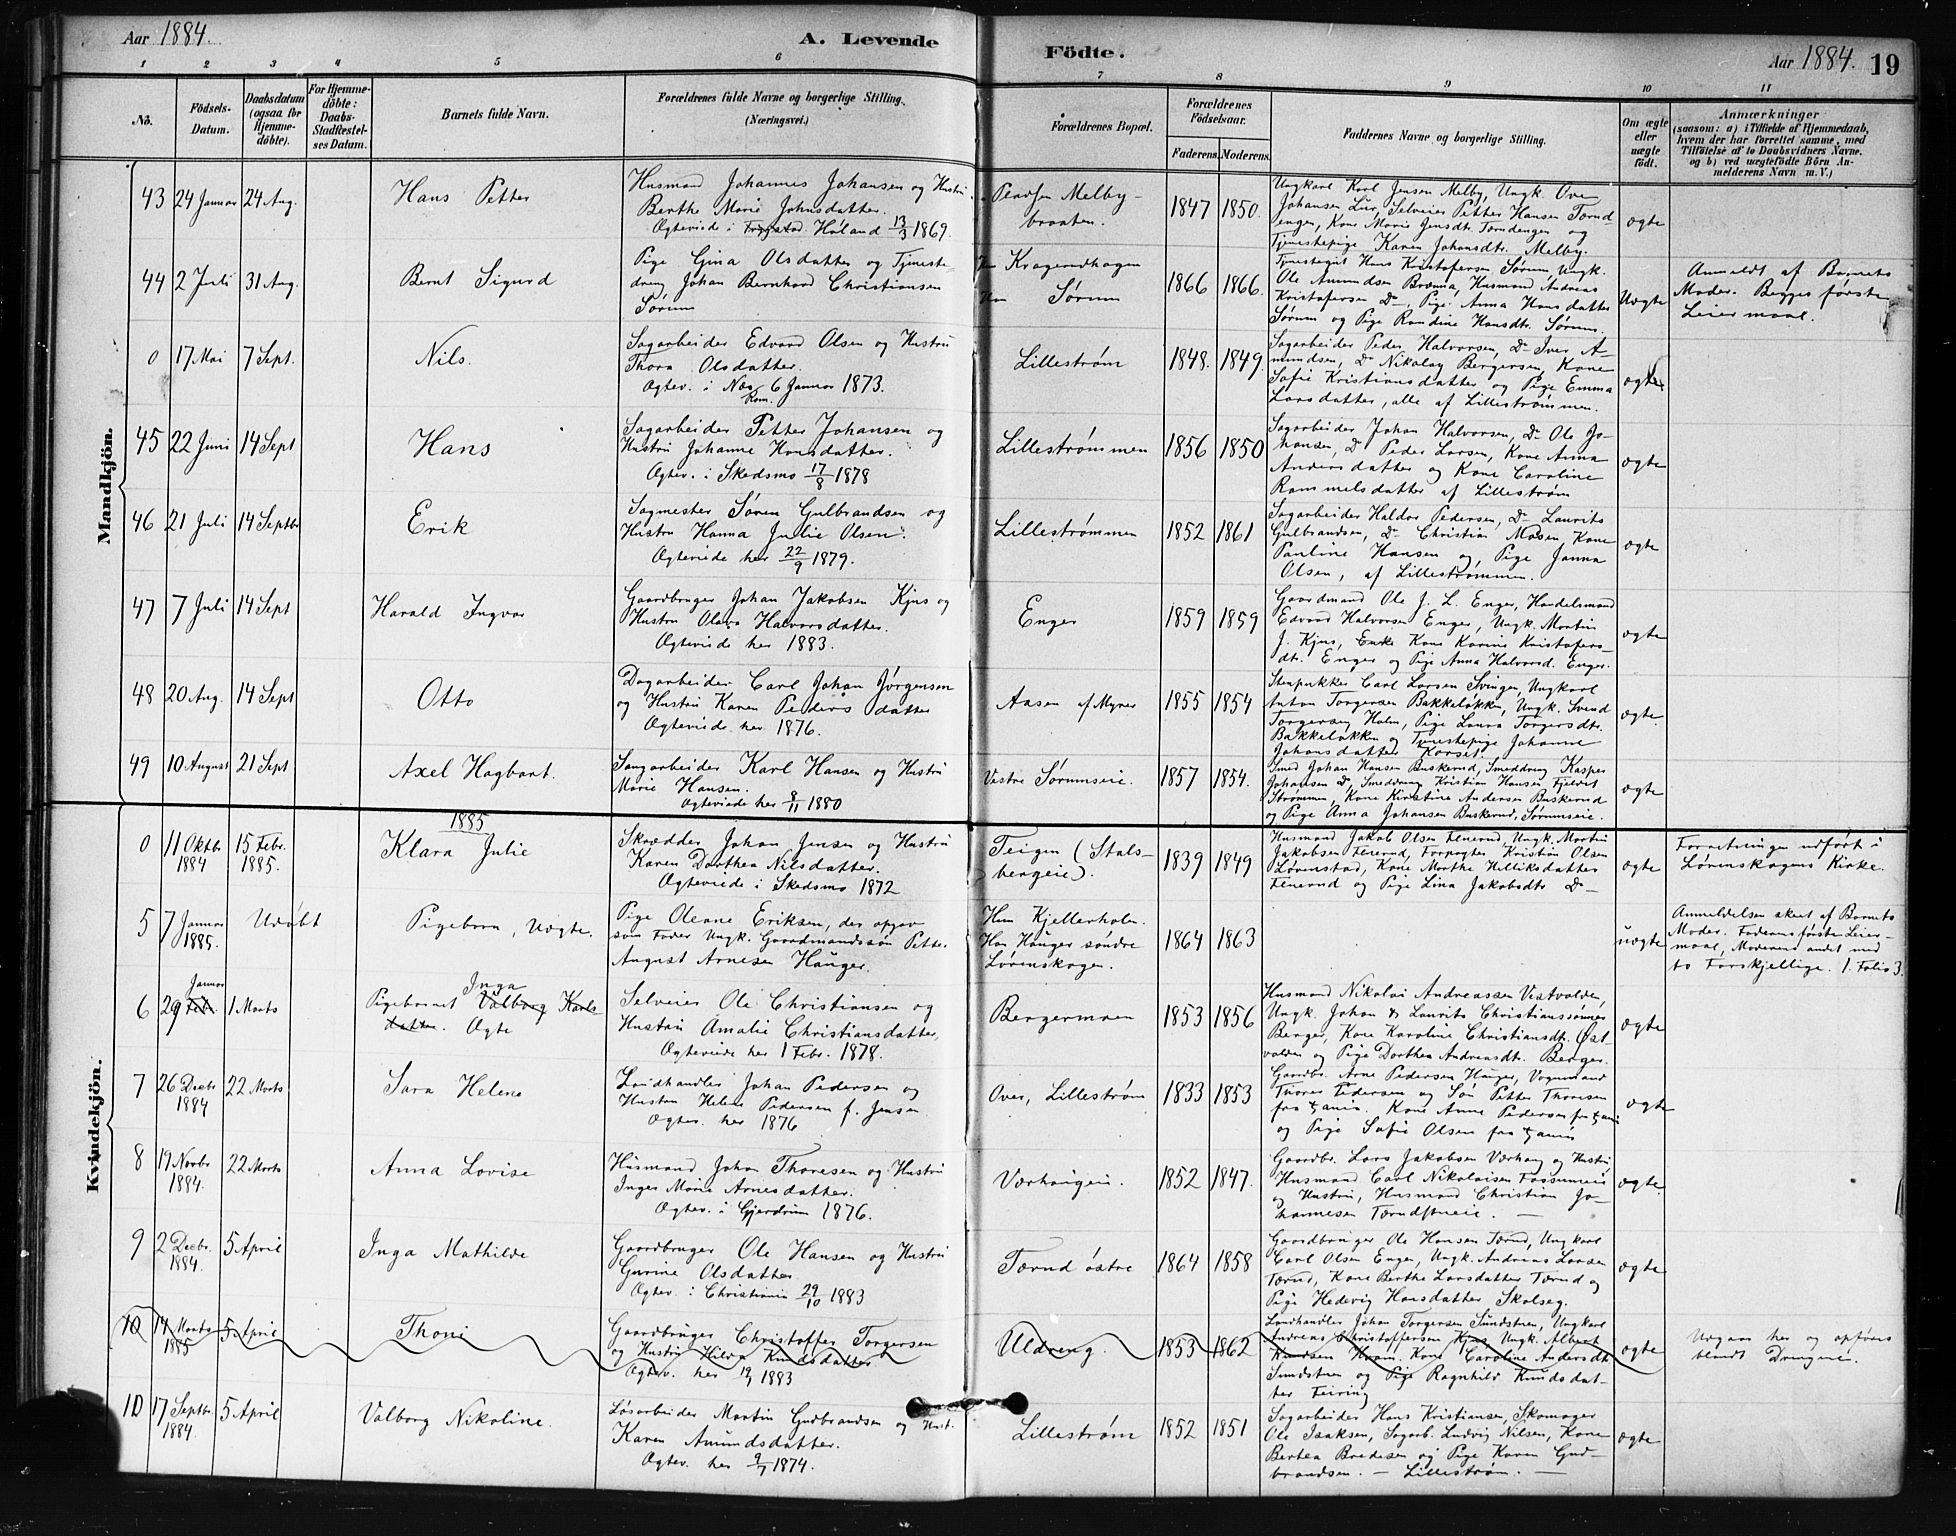 Aar 1884.
A. Levende
Födte.
Aar 1884. 19
1 2 3 4 5 6 7 8 9 10 11
No.
Födsels-
Datum.
Daabsdatum
(ogsaa for
Hjemme-
döbte).
For Hjemme-
döbte:
Daabs-
Stadfæstel-
ses Datum.
Barnets fulde Navn.
Forældrenes fulde Navne og borgerlige Stilling.
(Næringsvei.)
Forældrenes Bopæl.
Forældrenes
Födselsaar.
Faderens. Moderens.
Faddernes Navne og borgerlige Stilling.
Om ægte
eller
uægte
födt.
Anmærkninger
(saasom: a) i Tilfælde af Hjemmedaab,
hvem der har forrettet samme, med
Tilföielse af to Daabsvidners Navne.
og b) ved uægtefödte Börn An-
melderens Navn m. V.)
Mandkjön.
43 24 Januar 24 Aug.
Hans Petter
Husmand Johannes Johansen og Hustru
Berthe Marie Johnsdatter.
Ægteviede i Høland 13/3 1869.
Melby-
braaten.
1847 1850.
Ungkarl Karl Jensen Melby, Ungk. Ove
Johansen Lur, Selveier Petter Hansen Tærud-
engen, Kone Marie Jensdt. Tærudengen og
Tjenestepige Karen Johansdt. Melby.
ægte
44 2 Juli 31 Aug.
Bernt Sigurd
Pige Gina Olsdatter og Tjeneste-
dreng Johan Bernhard Christiansen
Sørum
Kragerudhagen
Sørum
1866 1866.
Tjenestegut Hans Kristofersen Sørum, Ungk.
Ole Amundsen Bræma, Husmand Andreas
Kristofersen Do, Pige Anna Hansdatter
Sørum og Pige Randine Hansdtr. Sørum.
Uægte
Anmeldt af Barnets
Moder. Begges første
Leiermaal.
0 17 Mai 7 Sept.
Nils.
Sagarbeider Edvard Olsen og Hustru
Thora Olsdatter.
Ægtev. i Næs 6 Januar 1873.
Rom.
Lillestrøm
1848. 1849.
Sagarbeider Peder Halvorsen, Do Iver A-
mundsen, Do Nikolay Bergersen, Kone
Sofie Kristiansdatter og Pige Emma
Larsdatter, alle af Lillestrømmen.
ægte
45 22 Juni 14 Sept
Hans
Sagarbeider Petter Johansen og
Hustru Johanne Hansdatter.
Ægtev. i Skedsmo 17/8 1878
Lillestrømmen
1856 1850
Sagarbeider Johan Halvorsen, Do Ole Jo-
hansen, Do Peder Larsen, Kone Anna
Andersdatter og Kone Caroline
Rammelsdatter af Lillestrøm
ægte
46 21 Juli 14 Septbr
Erik
Sagmester Søren Gulbrandsen og
Hustru Hanna Julie Olsen.
Ægteviede her 22/9 1879.
Lillestrømmen
1852 1861
Sagarbeider Haldor Pedersen, Do Laurits
Gulbrandsen, Do Christian Mosen, Kone
Pauline Hansen og Pige Janna
Olsen, af Lillestrømmen.
ægte
47 7 Juli 14 Sept
Harald Ingvar
Gaardbruger Johan Jakobsen Kjus og
Hustru Olava Halvorsdatter.
Ægteviede her 1883.
Enger
1859 1859
Gaardmand Ole J. L. Enger, Handelsmand
Edvard Halvorsen Enger, Ungk. Martin
J. Kjus, Enke Kone Karine Kristofers-
dtr. Enger og Pige Anna Halvorsd. Enger.
ægte
48 20 Aug. 14 Sept
Otto
Dagarbeider Carl Johan Jørgensen
og Hustru Karen Pedersdatter
Ægteviede her 1876.
Aasen af Myrer
1855 1854
Stenpukker Carl Larsen Svingen, Ungkarl
Anton Torgersen Bakkeløkken, Ungk. Svend
Torgersen Holm, Pige Laura Torgersdtr.
Bakkeløkken og Tjenestepige Johanne
Johansdatter Korset.
ægte.
49 10 August 21 Sept
Axel Hagbart.
Saugarbeider Karl Hansen og Hustru
Marie Hansen.
Ægteviede her 8/11 1880
Vestre Sørumseie.
1857 1854.
Smed Johan Hansen Buskerud, Smeddreng Kasper
Johansen Do, Smeddreng Kristian Hansen Fjeldet
Strømmen, Kone Kirstine Andersen Buskerud
og Pige Anna Johansen Buskerud, Sørumseie.
ægte
Kvindekjön.
1885
0 11 Oktbr 1884 15 Febr. 1885.
Klara Julie
Skrædder Johan Jensen og Hustru
Karen Dorthea Nilsdatter.
Ægteviede i Skedsmo 1872
Teigen (Stals-
bergeie).
1839 1849
Husmand Jakob Olsen Finerud, Ungk. Martin
Jakobsen Finerud, Forpagter Kristian Olsen
Lørenstad, Kone Marthe
Finerud og Pige Lina Jakobsdtr Do
ægte
Forretningen udført i
Lørenskogens Kirke.
5 7 Januar 1885. Udøbt
Pigebarn, Uægte.
Pige Oleane Eriksen, der opgav
som Fader Ungk. Gaardmandssøn Petter
August Arnesen Hauger.
Hun Kjellerholen.
Han Hauger søndre
Lørenskogen.
1864 1863
uægte
Anmeldelsen skeet af Barnets
Moder. Faderens første Leier-
maal, Moderens andet med
to Forskjellige. 1. Folio 3.
6 29 Januar Feb. 1 Marts
Pigebarnet Inga Valborg Karls-
datter. Ægte
Selveier Ole Christiansen og
Hustru Amalie Christiansdatter,
Ægteviede her 1 Febr. 1878.
Bergermoen
1853 1856
Husmand Nikolai Andreassen Vestvolden,
Ungk. Johan & Laurits Christianssønner
Berger, Kone Karoline Christiansdt. Øst-
volden og Pige Dorthea Andreasdt. Berger.
ægte
7 26 Decbr 1884 22 Marts
Sara Helene
Landhandler Johan Pedersen og
Hustru Helene Pedersen f. Jensen.
Ægtev. her 1876
Over, Lillestrøm
1833 1853
Gaardbr. Arne Pedersen Hauger, Vognmand
Thores Pedersen og Søn Petter Thoresen
fra Xania. Kone Anne Pedersen fra Xania
og Pige Sofie Olsen fra Xania
ægte
8 19 Novbr 1884. 22 Marts
Anna Lovise
Husmand Johan Thoresen og Hustru
Inger Marie Arnesdatter.
Ægtev. i Gjerdrum 1876.
Værhaugeie.
1852 1847.
Gaardbr. Lars Jakobsen Værhaug og Hustru
Husmand Carl Nikolaisen Fossumeie
og Hustru, Husmand Christian Jo-
hannesen Tærudstueie.
ægte.
9 2 Decbr. 1884. 5 April
Inga Mathilde
Gaardbruger Ole Hansen og Hustru
Gurine Olsdatter
Ægtev. i Christiania 29/10 1883
Tærud østre
1864 1858
Gaardbruger Ole Hansen Tærud, Ungkarl
Carl Olsen Enger, Ungk. Andreas Larsen
Tærud, Kone Berthe Larsdatter Tærud og
Pige Hedevig Hansdatter Skolseg.
ægte
10 14 Marts 1885 5 April
Thoni
Gaardbruger Christoffer Torgersen
og Hustru Hilda Knudsdatter
Ægtev. her 1883
Uldreng.
1853 1862
Landhandler Johan Torgersen Sundstuen, Ungkarl
Andreas Christoffersen Kjus, Ungk. Albert
Knudsen Hvam, Kone Caroline Andersdt.
Sundstuen og Pige Ragnhild Knudsdat-
ter Feiring
ægte
Udgaar her og opføres
blandt Drengene.
10 17 Septbr. 1884. 5 April
Valborg Nikoline.
Løsarbeider Martin Gudbrandsen og Hust.
Karen Amundsdatter.
Ægtev. her 9/7 1874.
Lillestrøm
1852 1851
Sagarbeider Hans Kristiansen, Skomager
Ole Isaksen, Sagarb. Ludvig Nilsen, Kone
Berthea Bredesen og Pige Karen Gud-
brandsen. — Lillestrøm. —
ægte